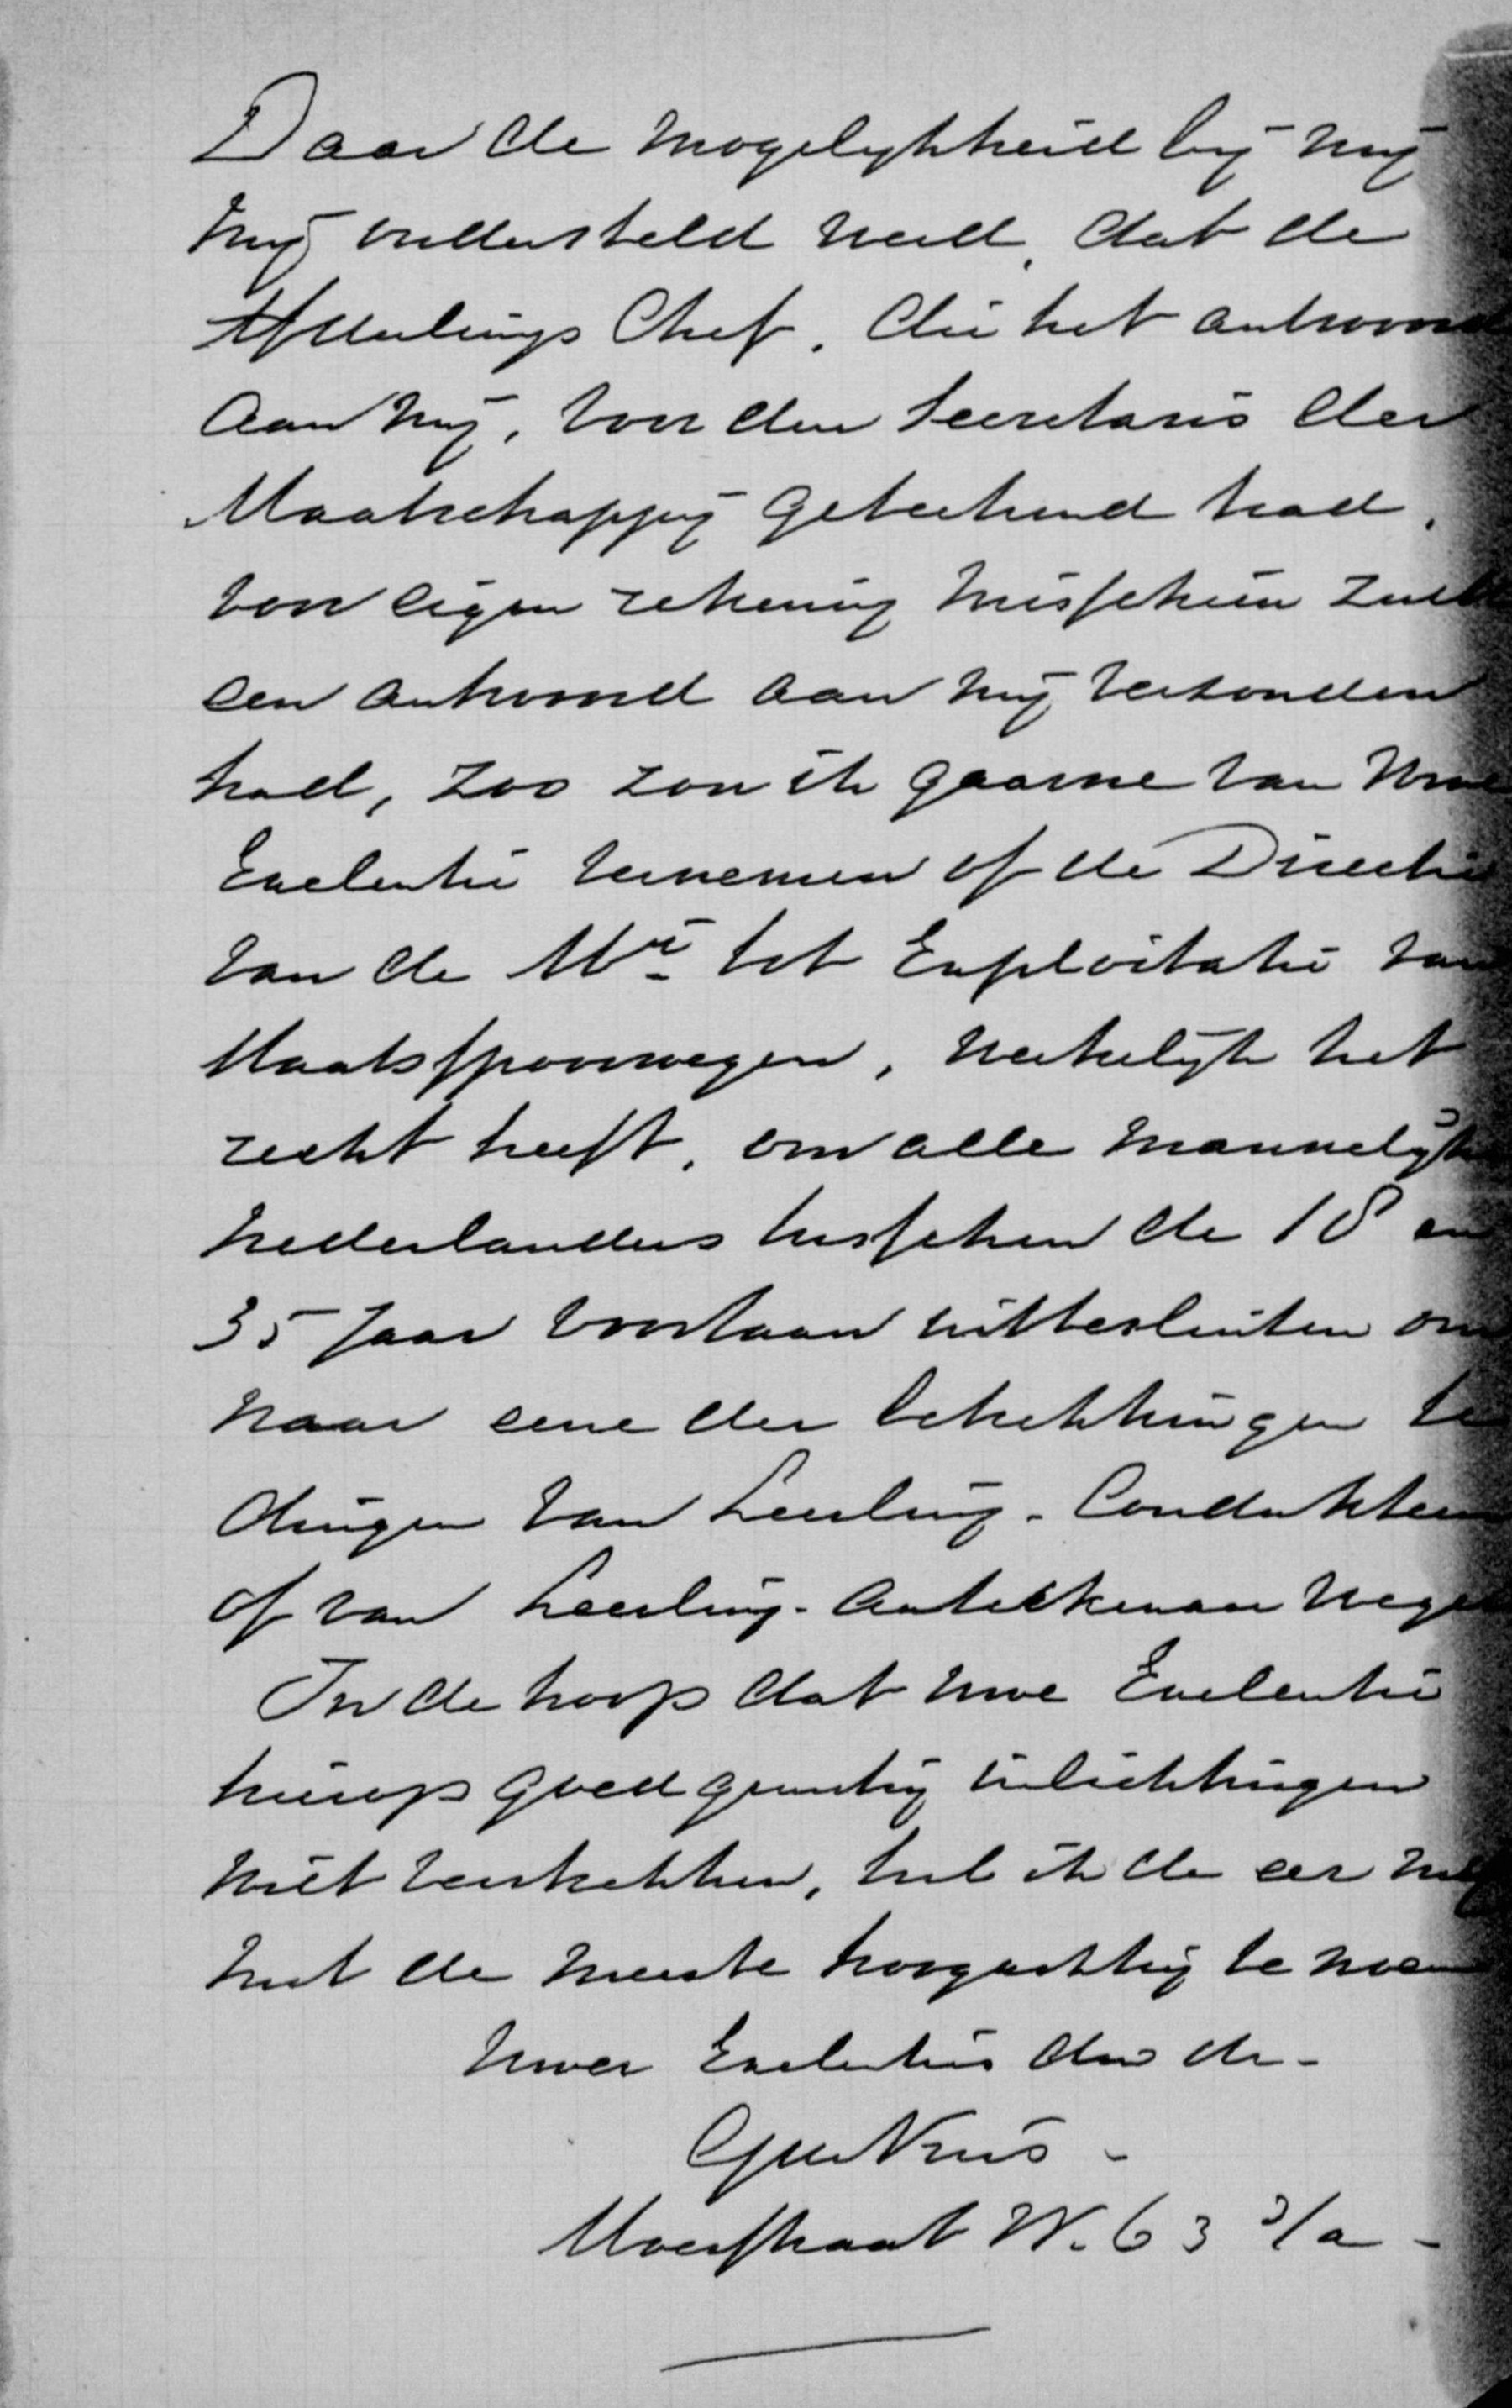 Daar de mogelykheid by my
my ondersteld werd, dat de
Afdeelings Chef, die het antwoord
aan my, voor den Secretaris der
Maatschappy geteekend had,
voor eigen rekening misschien zulk
een antwoord aan my verzonden
had, zoo zou ik gaarne van Uwe
Excelentie vernemen of de Directie
van de Mij tot Exploitatie van
Staatsspoorwegen, werkelyk het
recht heeft, om alle mannelyke
Nederlanders tusschen de 18 en
35 Jaar voortaan uittesluiten om
naar eene der betrekkingen te
dingen van Leerling-Condukteur
of van Leerling-aanteekenaar
In de hoop dat Uwe Excelentie
hierop goedgunstig inlichtingen
wilt verstrekken, heb ik de eer my
met de meeste hoogachting te noemen
Uwer Excelenties dw dr-
Moerstraat W. 63 a -